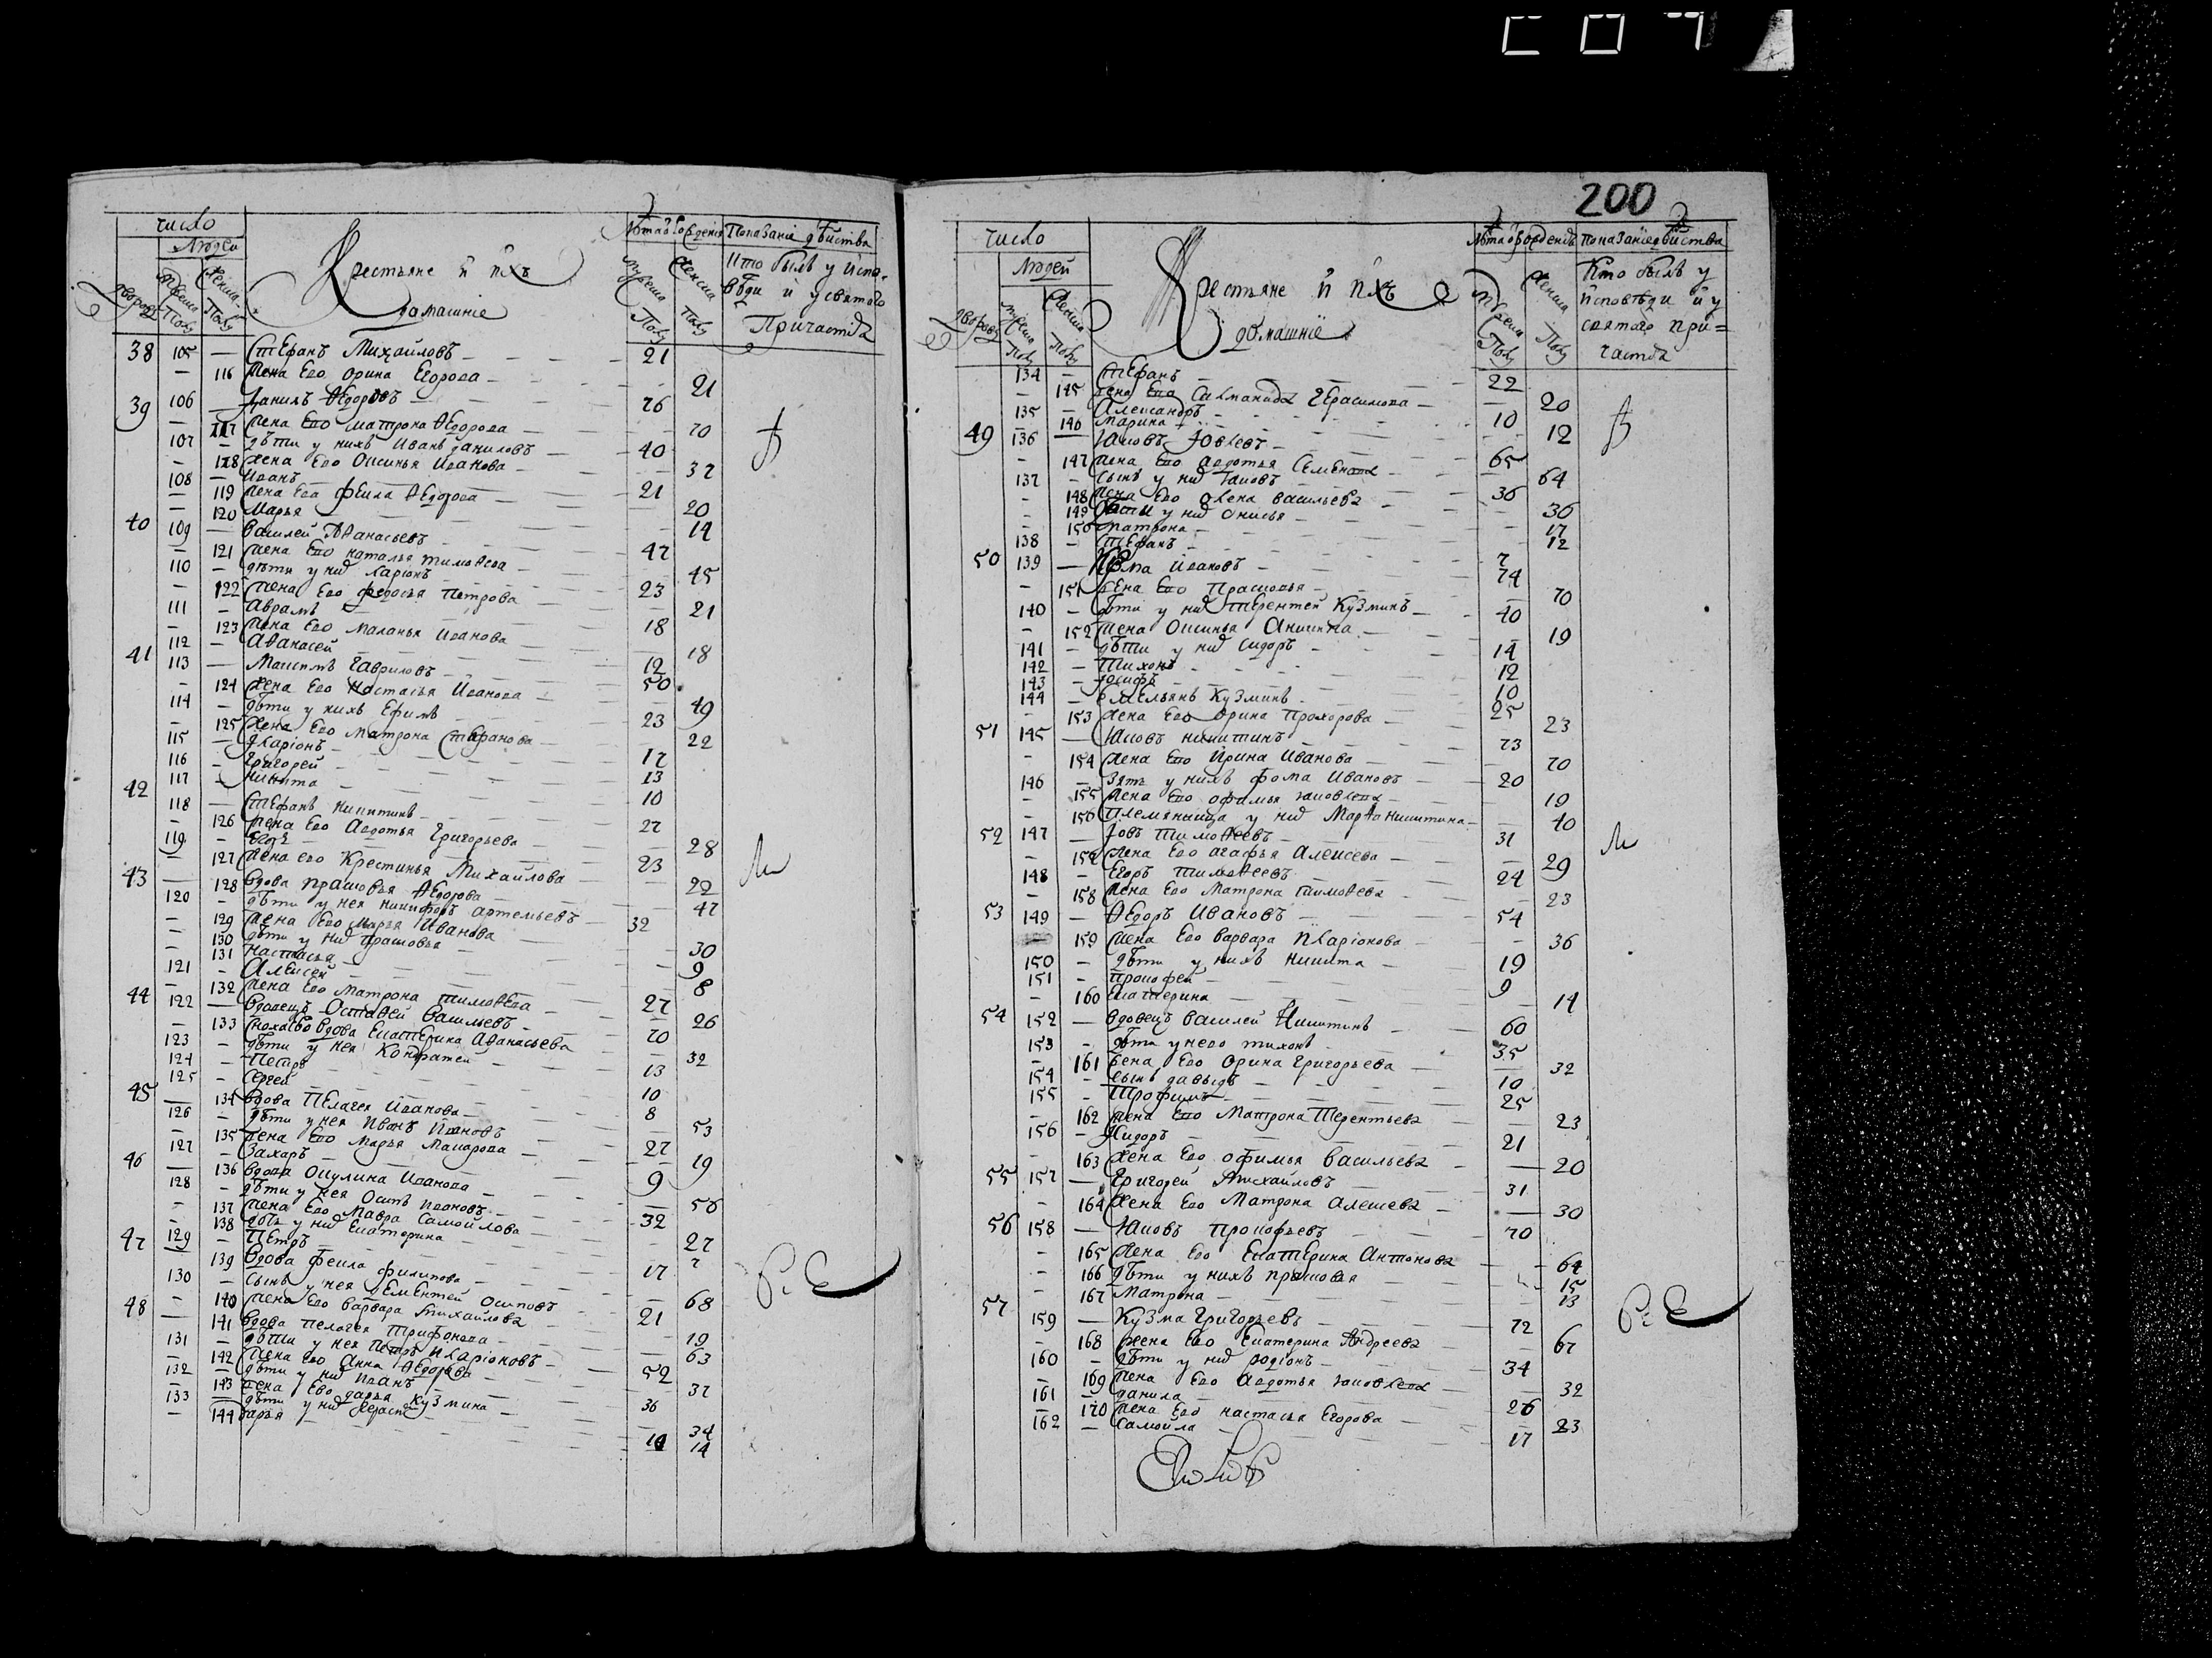 число
Людей
дворовъ
Мужеска Полу
Женска Полу
Крестьяне и ихъ домашніе
Лѣта от рожденія
Мужеска Полу
Женска Полу
Показаніе дѣйства
Кто былъ у испо-
вѣди и у святого
Причастія
38 105 — Стефанъ Михайловъ — 21
— 116 жена Ево Орина Егорова — 21
39 106 — Данилъ Ѳедоровъ 76
— 117 жена Ево Матрона Ѳедорова — 70
107 — дѣти у нихъ Иванъ Даниловъ — 40
— 118 жена Ево Оксинья Иванова — 37
108 — Иванъ — 21
— 119 жена Ево Фекла Ѳедорова — 20
— 120 Марья — 14
40 109 — Василей Аѳанасьевъ — 47
— 121 жена Ево Наталья Тимоѳеева — 45
110 — дѣти у них Ларіонъ — 23
— 122 жена Ево Федосья Петрова — 21
111 — Аврамъ — 18
— 123 жена Ево Маланья Иванова — 18
112 — Аѳанасей — 12
41 113 — Максимъ Гавриловъ — 50
— 124 жена Ево Настасья Иванова — 49
114 — дѣти у нихъ Ефимъ — 23
— 125 жена Ево Матрона Стефанова — 22
115 — Иларіонъ — 17
116 — Григорей — 13
117 — Никита — 10
42 118 — Стефанъ Никитинъ — 27
— 126 жена Ево Авдотья Григорьева — 28
119 — Егоръ — 23
— 127 жена ево Крестинья Михайлова — 22
43 — 128 вдова Прасковья Ѳедорова — 47
120 — дѣти у нея Никифоръ Артемьевъ — 32
— 129 жена Ево Марья Иванова — 30
— 130 дѣти у них Прасковья — 9
— 131 Настасья — 8
121 — Алексей — 27
— 132 жена Ево Матрона Тимоѳеева — 26
44 122 — вдовецъ Остаѳей Васильевъ — 70
— 133 сноха Ево вдова Екатерина Аѳанасьева — 32
123 — дѣти у нея Кондратей — 13
124 — Петръ — 10
125 — Сергей — 8
45 — 134 вдова Пелагея Иванова — 53
126 — дѣти у нея Иванъ Ивановъ — 27
— 135 жена Ево Марья Макарова — 19
127 — Захаръ — 9
46 — 136 вдова Окулина Иванова — 56
128 — дѣти у нея Осипъ Ивановъ — 32
— 137 жена Ево Мавра Самойлова — 27
— 138 дочь у них Екатерина — 7
129 — Петръ — 17
47 — 139 вдова Фекла Филипова — 68
130 — сынъ у нея Елементей Осиповъ — 21
— 140 жена Ево Варвара Михайлова — 19
48 — 141 вдова Пелагея Трифонова — 63
131 — дѣти у нея Петръ Иларіоновъ — 52
— 142 жена Ево Анна Ѳедорова — 37
132 — дѣти у них Иванъ — 36
— 143 жена Ево Дарья Кузмина — 34
133 — дѣти у них — 14
— 144 Дарья — 14
200
число
Людей
дворовъ
Мужеска Полу
Женска Полу
Крестьяне и ихъ домашніе
Мужеска Полу
Женска Полу
Показаніе дѣйства
Кто былъ у
исповѣди и у
святаго при=
частія
134 — Стефанъ — 22
— 145 жена Ево Саломанида Герасимова — 20
135 — Александръ — 10
— 146 Марина — 12
49 136 — Яковъ Іовлевъ — 65
— 147 жена Ево Авдотья Семенова — 64
137 — сынъ у них Яковъ — 36
— 148 жена Ево Олена Васильева — 36
— 149 дѣти у них Онисья — 17
— 150 Матрона — 12
138 — Стефанъ — 7
50 139 — Кузма Ивановъ — 74
— 151 жена Ево Прасковья — 70
140 — дѣти у них Терентей Кузминъ — 40
— 152 жена Оксинья Аникина — 19
141 — дѣти у них Сидоръ — 14
142 — Тихонъ — 12
143 — Іосифъ — 10
144 — Емельянъ Кузминъ — 25
— 153 жена Ево Орина Прохорова — 23
51 145 — Яковъ Никитинъ — 73
— 154 жена Ево Ирина Иванова — 70
146 — зять у нихъ Фома Ивановъ — 20
— 155 жена Ево Офимья Яковлева — 19
— 156 племянница у них Марѳа Никитина — 40
52 147 — Іовъ Тимоѳеевъ — 31
— 157 жена Ево Агафья Алексеева — 29
148 — Егоръ Тимоѳеевъ — 24
— 158 жена Ево Матрона Тимоѳеева — 23
53 149 — Ѳедоръ Ивановъ — 54
— 159 жена Ево Варвара Иларіонова — 36
150 — дѣти у нихъ Никита — 19
151 — Прокофей — 9
— 160 Екатерина — 14
54 152 — вдовецъ Василей Никитинъ — 60
153 — дѣти у нево Тихонъ — 35
— 161 жена Ево Орина Григорьева — 32
154 — сынъ Давыдъ — 10
155 — Трофимъ — 25
— 162 жена Ево Матрона Терентьева — 23
156 — Сидоръ — 21
— 163 жена Ево Офимья Васильева — 20
55 157 — Григорей Михайловъ — 31
— 164 жена Ево Матрона Алексеева — 30
56 158 — Яковъ Прокофьевъ — 70
— 165 жена Ево Екатерина Антонова — 64
— 166 дѣти у нихъ Прасковья — 15
— 167 Матрона — 13
57 159 — Кузма Григорьевъ — 72
— 168 жена Ево Екатерина Андреева — 67
160 — дѣти у них Родіонъ — 34
— 169 жена Ево Авдотья Яковлева — 32
161 — Данила — 26
— 170 жена Ево Настасья Егорова — 23
162 — Самойла — 17